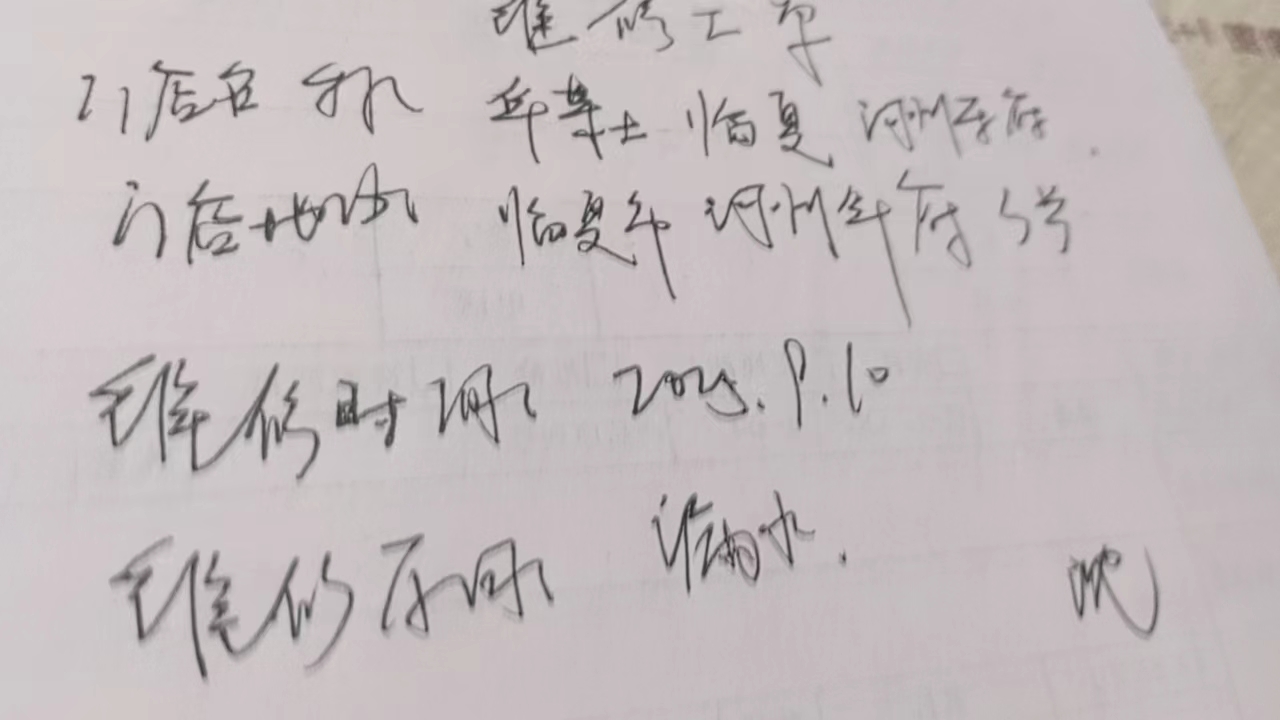 维修工单
门店名称 牟博士 临夏 河州牟府
门店地址 临夏市 河州牟府 5号
维修时间 2025.9.10
维修原因 漏水.